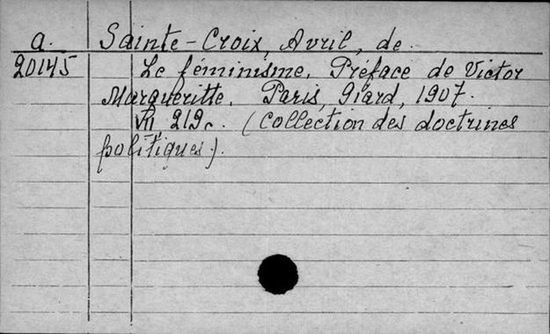 a. Sainte-Croix, Avril, de.
20145 Le féminisme. Préface de Victor
Margueritte. Paris, Giard, 1907.
VII, 219 c. (Collection des doctrines
politiques).